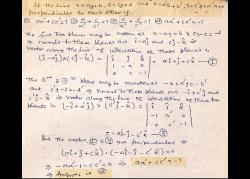 If the lines x=ay+b, z=cy+d and x=a'y+b', z=c'y+d' are
perpendicular to each other if,
① aa'+cc'=1 ② a/a' + c/c' = -1 ③ a/a' + c/c' = 1 ④ aa'+cc'=-1
The first two planes may be written as x-ay=b & cy-z=-d
⇒ normals to these planes are i-aj and cj-k ⇒
vector along the line of intersection of these planes is
(i-aj)×(cj-k) = | i j k | = ai+j+ck — ①
1 -a 0
0 c -1
The planes may be written as -x+a'y=-b'
and c'y-z=-d' ⇒ normals to these planes are -i+a'j and
c'j-k ⇒ vector along the line of intersection of these
planes is (-i+a'j)×(c'j-k) = | i j k |
-1 a' 0
0 c' -1
= -a'i-j-c'k — ②
But the vectors ① & ② are perpendicular ⇒
(ai+j+ck)·(-a'i-j-c'k)=0
⇒ -aa'-1-cc'=0 ⇒ aa'+cc'=-1
⇒ Answer is ④